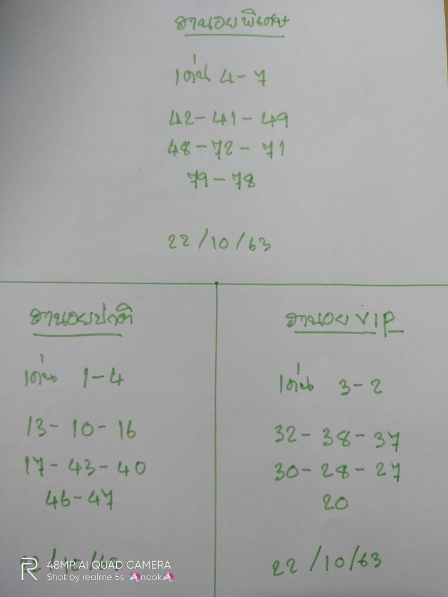 ฮานอยพิเศษ
เด่น 4-7
42-41-49
48-72-71
79-78
22/10/63
ฮานอยปกติ
เด่น 1-4
13-10-16
17-43-40
46-47
ฮานอย VIP
เด่น 3-2
32-38-37
30-28-27
20
22/10/63
48MP AI QUAD CAMERA
Shot by realme 5s